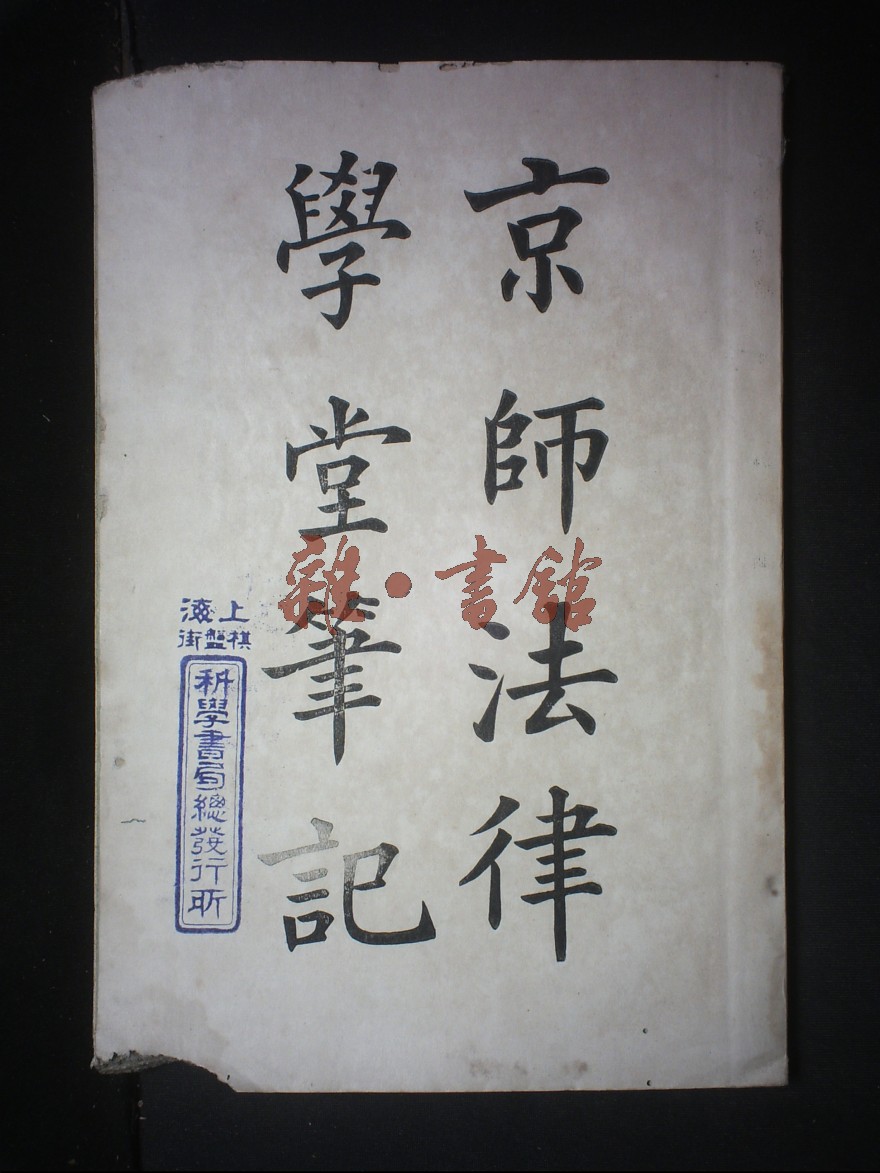 京師法律
學堂筆記
雜·書館
上海
棋盤街
科學書局總發行所